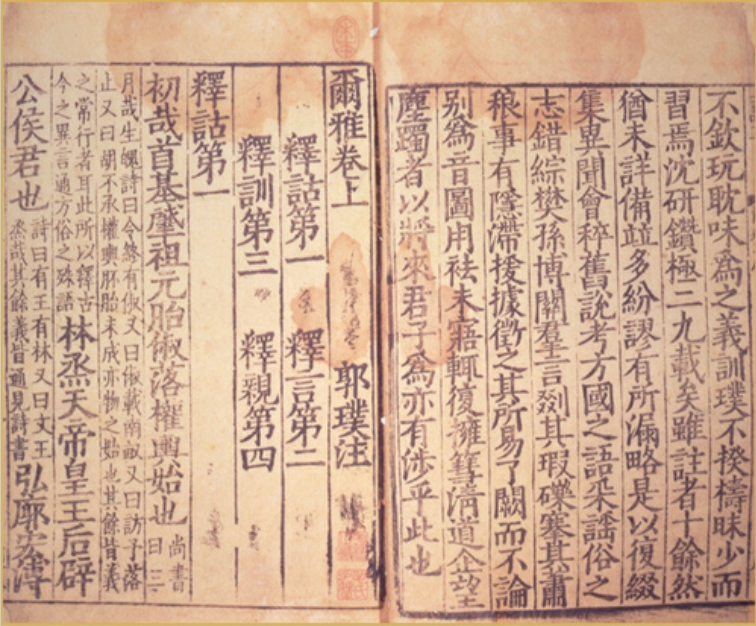 不欽玩耽味爲之義訓璞不揆檮昧少而
習焉沈研鑽極二九載矣雖註者十餘然
猶未詳備竝多紛謬有所漏略是以復綴
集異聞會稡舊說考方國之語采謠俗之
志錯綜樊孫博關羣言剟其瑕礫搴其蕭
稂事有隱滯援據徵之其所易了闕而不論
別爲音圖用袪未寤輒復擁篲淸道企望
塵躅者以將來君子爲亦有涉乎此也
爾雅卷上 郭璞注
釋詁第一 釋言第二
釋訓第三 釋親第四
釋詁第一
初哉首基肈祖元胎俶落權輿始也 尚書曰三
月哉生魄詩曰令終有俶又曰俶載南畝又曰訪予落
止又曰胡不承權輿胚胎未成亦物之始也其餘皆義
之常行者耳此所以釋古
今之異言通方俗之殊語 林烝天帝皇王后辟
公侯君也 詩曰有王有林又曰文王
烝哉其餘義皆通見詩書 弘廓宏溥